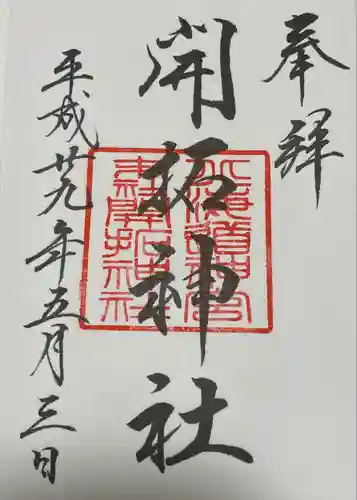 奉拜
開拓神社
北海道神宮
末社開拓神社
平成廿九年五月三日